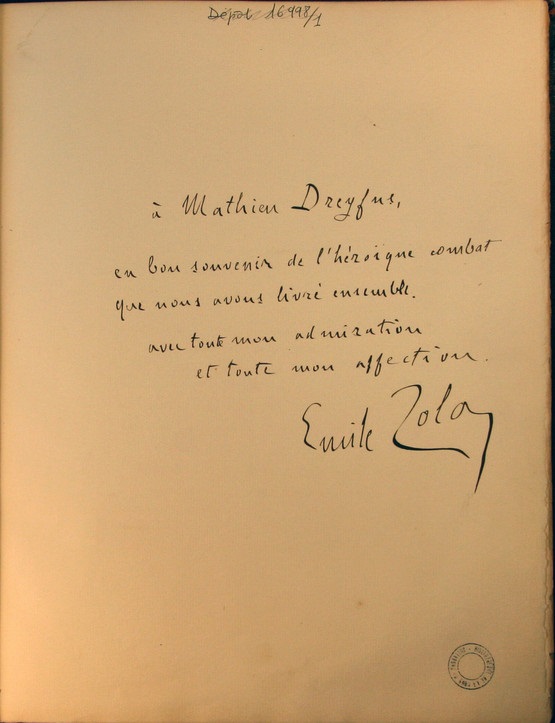 Dépot 16998/1
à Mathieu Dreyfus,
en bon souvenir de l'héroïque combat
que nous avons livré ensemble.
avec toute mon admiration
et toute mon affection.
Emile Zola